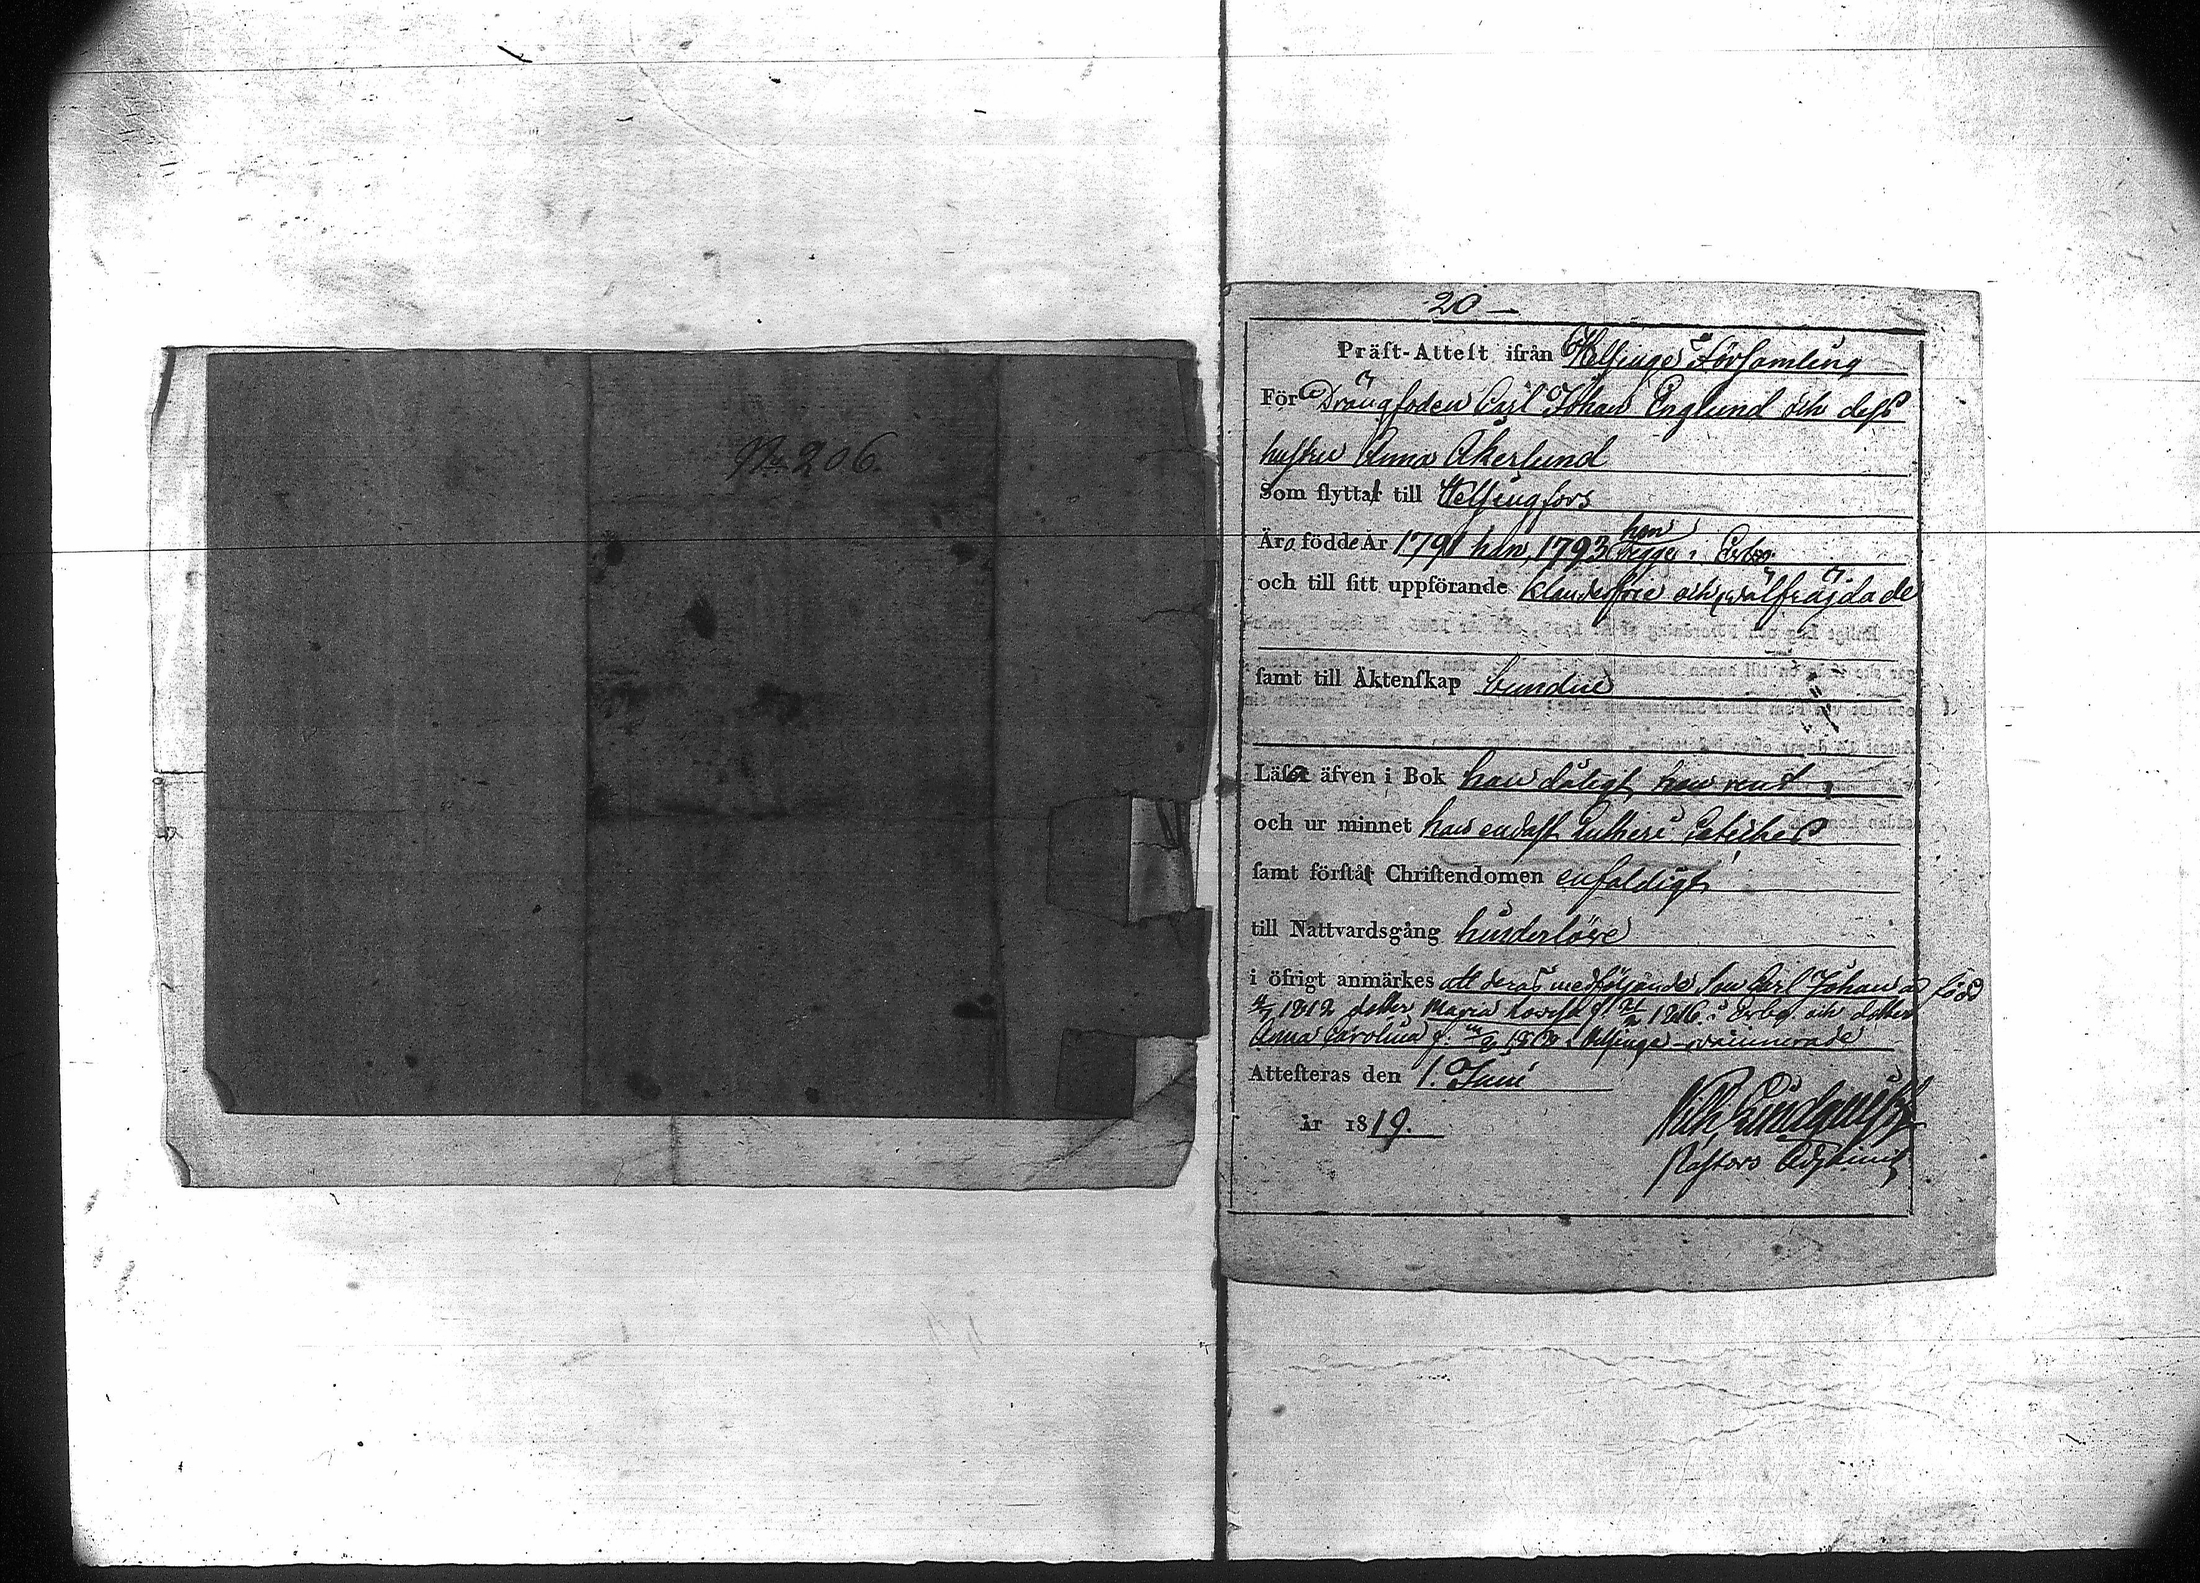 No 206.
20 —
Präſt-Atteſt ifrån Helsinge Församling
För Drängſoden Carl Johan Englund och deſs
hustru Anna Åkerlund
Som flyttat till Helsingfors
Äro födde År 1791 han, 1793 hon begge i Esbo
och till ſitt uppförande klanderfrie och wälfräjdade
ſamt till Äktenſkap bundne
Läſa äfven i Bok han dåligt hon rent
och ur minnet han endast Lutheri Cateches
ſamt förſtå Chriſtendomen enfaldigt
till Nattvardsgång hinderlöse
i öfrigt anmärkes att deras medföljande Son Carl Johan är född
1812 dotter Maria Lovisa f 1816 i Esbo och dotter
Anna Carolina f. i Helsinge wäccinerade
Atteſteras den 1. Juni
År 1819.
Lundqvist
Pastors Adjunct